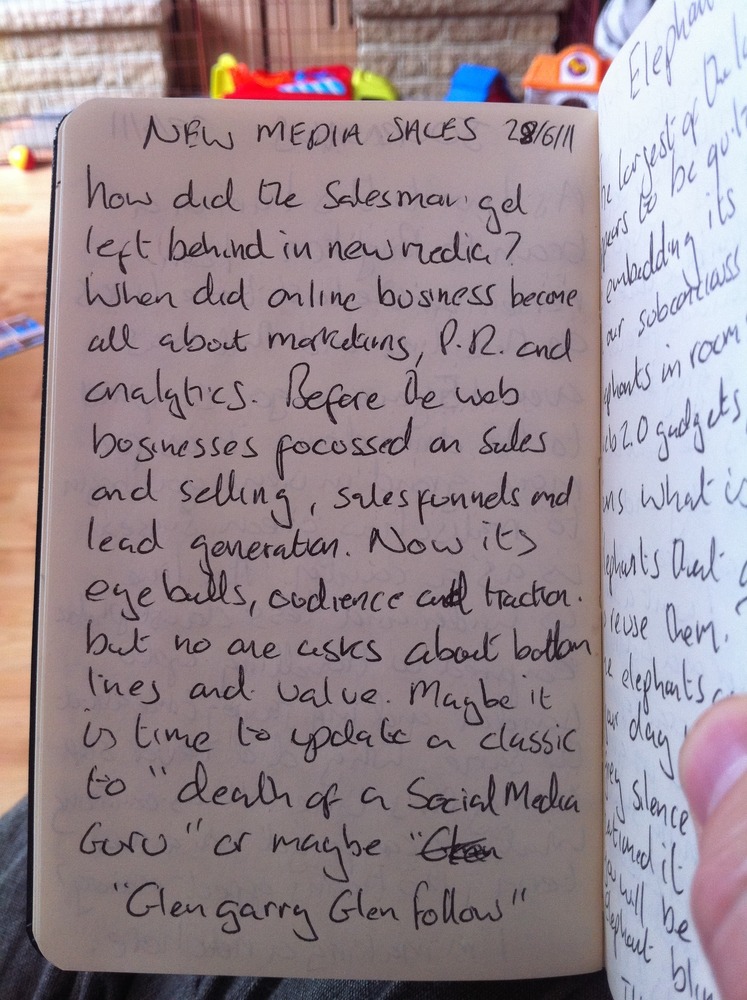 NEW MEDIA SALES 28/6/11
how did the Salesman get
left behind in new media?
When did online business become
all about marketing, P.R. and
analytics. Before the web
businesses focussed on sales
and selling, sales funnels and
lead generation. Now its
eyeballs, audience and traction.
but no one asks about bottom
lines and value. Maybe it
is time to update a classic
to "death of a Social Media
Guru" or maybe "Glen
"Glen garry Glen follow"
Elephan
largest of the
to be
embedding its
our subconscious
in room
2.0 gadgets
what is
that
reuse them.
elephants
day
silence
it
will be